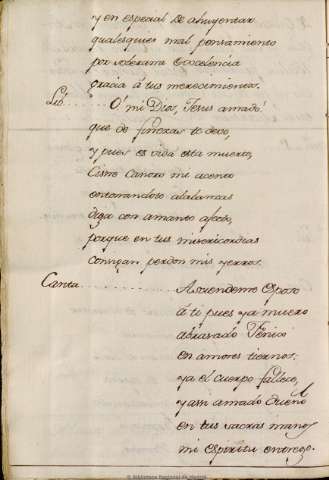 y en especial de ahuyentar
qualesquier mal pensamiento
por soberana Excelencia
gracia á tus merecimientos.
O mi Dios, Jesus amado
que de finezas te devo,
y pues es vida esta muerte,
Cisne Canoro mi acento
entonandote alabanzas
diga con amante afecto,
porque en tus misericordias
consigan perdon mis yerros.
Canta Atiendeme Esposo
á ti pues ya muero
abrasado
en amores tiernos;
ya el cuerpo fallece,
y assi amado Dueño
en tus sacras manos
mi espiritu entrego.
© Biblioteca Nacional de España